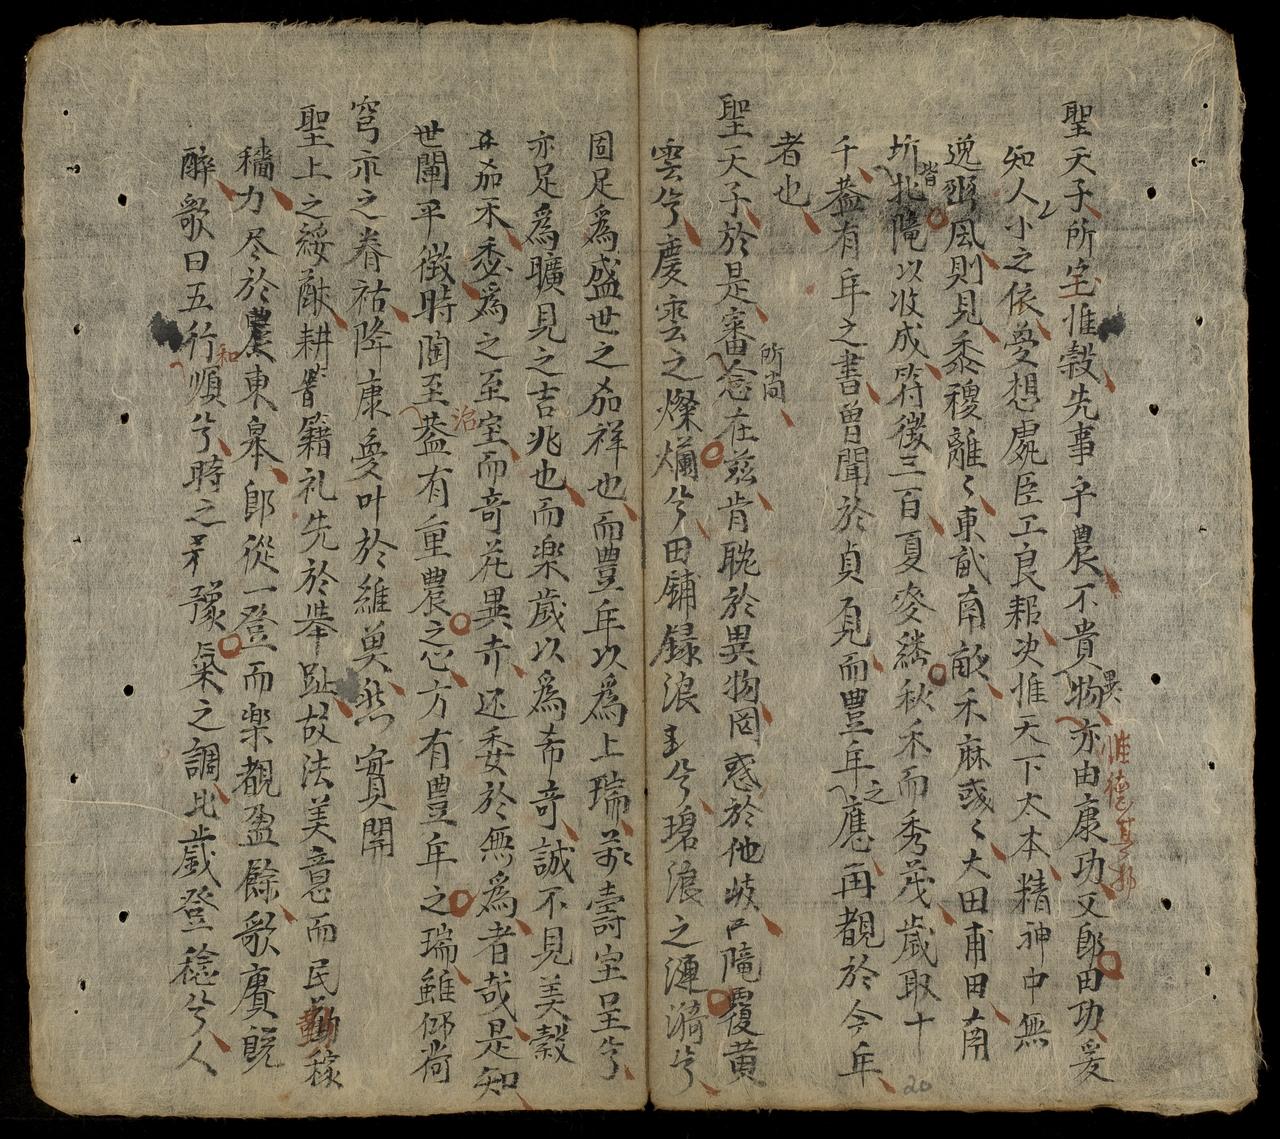 聖天子所宝惟穀先事乎農不貴異物亦由康功又郎田功爰
惟德其物
知人小之依爰想處臣工良耜决惟天下太本精神中無
逸豳風則見黍稷離〻東畝南畝禾麻彧〻大田甫田南
圻皆北隴以收成符徵三百夏麥繙秋禾而秀茂歲取十
千盖有年之書曾聞於貞覌而豊年之應再覩於今年
者也
聖天子於是審所尚念在兹肯耽於異物罔惑於他岐隴覆黄
雲兮慶雲之燦爛兮田鋪録浪兮碧浪之漣漪兮
固足為盛世之加祥也而豊年以為上瑞萬壽室呈兮
亦足為曠見之吉兆也而楽歲以為希竒誠不見美榖
加禾委為之至宝而竒花異卉还委於無為者哉是知
世闡平徵時陶至治盖有重農之心方有豊年之瑞雖仰荷
穹示之眷祜降康爰叶於維莫然實開
聖上之綏猷耕耤籍礼先於舉趾故法美意而民勤稼
穡力尽於農東皋郎從一登而楽覩盈餘歌賡既
醉歌曰五行和順兮時之豫氣之調比歲登稔兮人
20